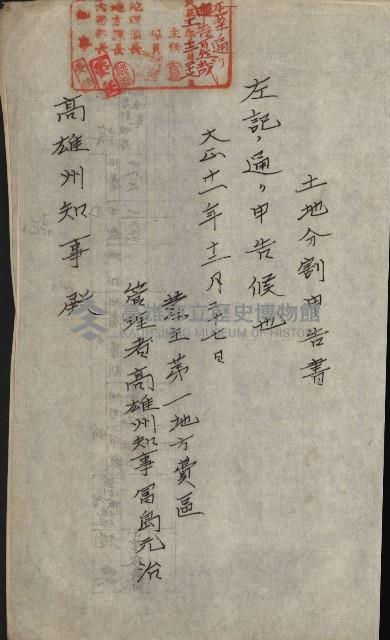 土地分割申告書
左記ノ通リ申告候也
大正十一年十二月二十七日
業主第一地方費區
管理者高雄州知事冨島元治
高雄州知事殿
高雄市立歷史博物館
KAOHSIUNG MUSEUM OF HISTORY